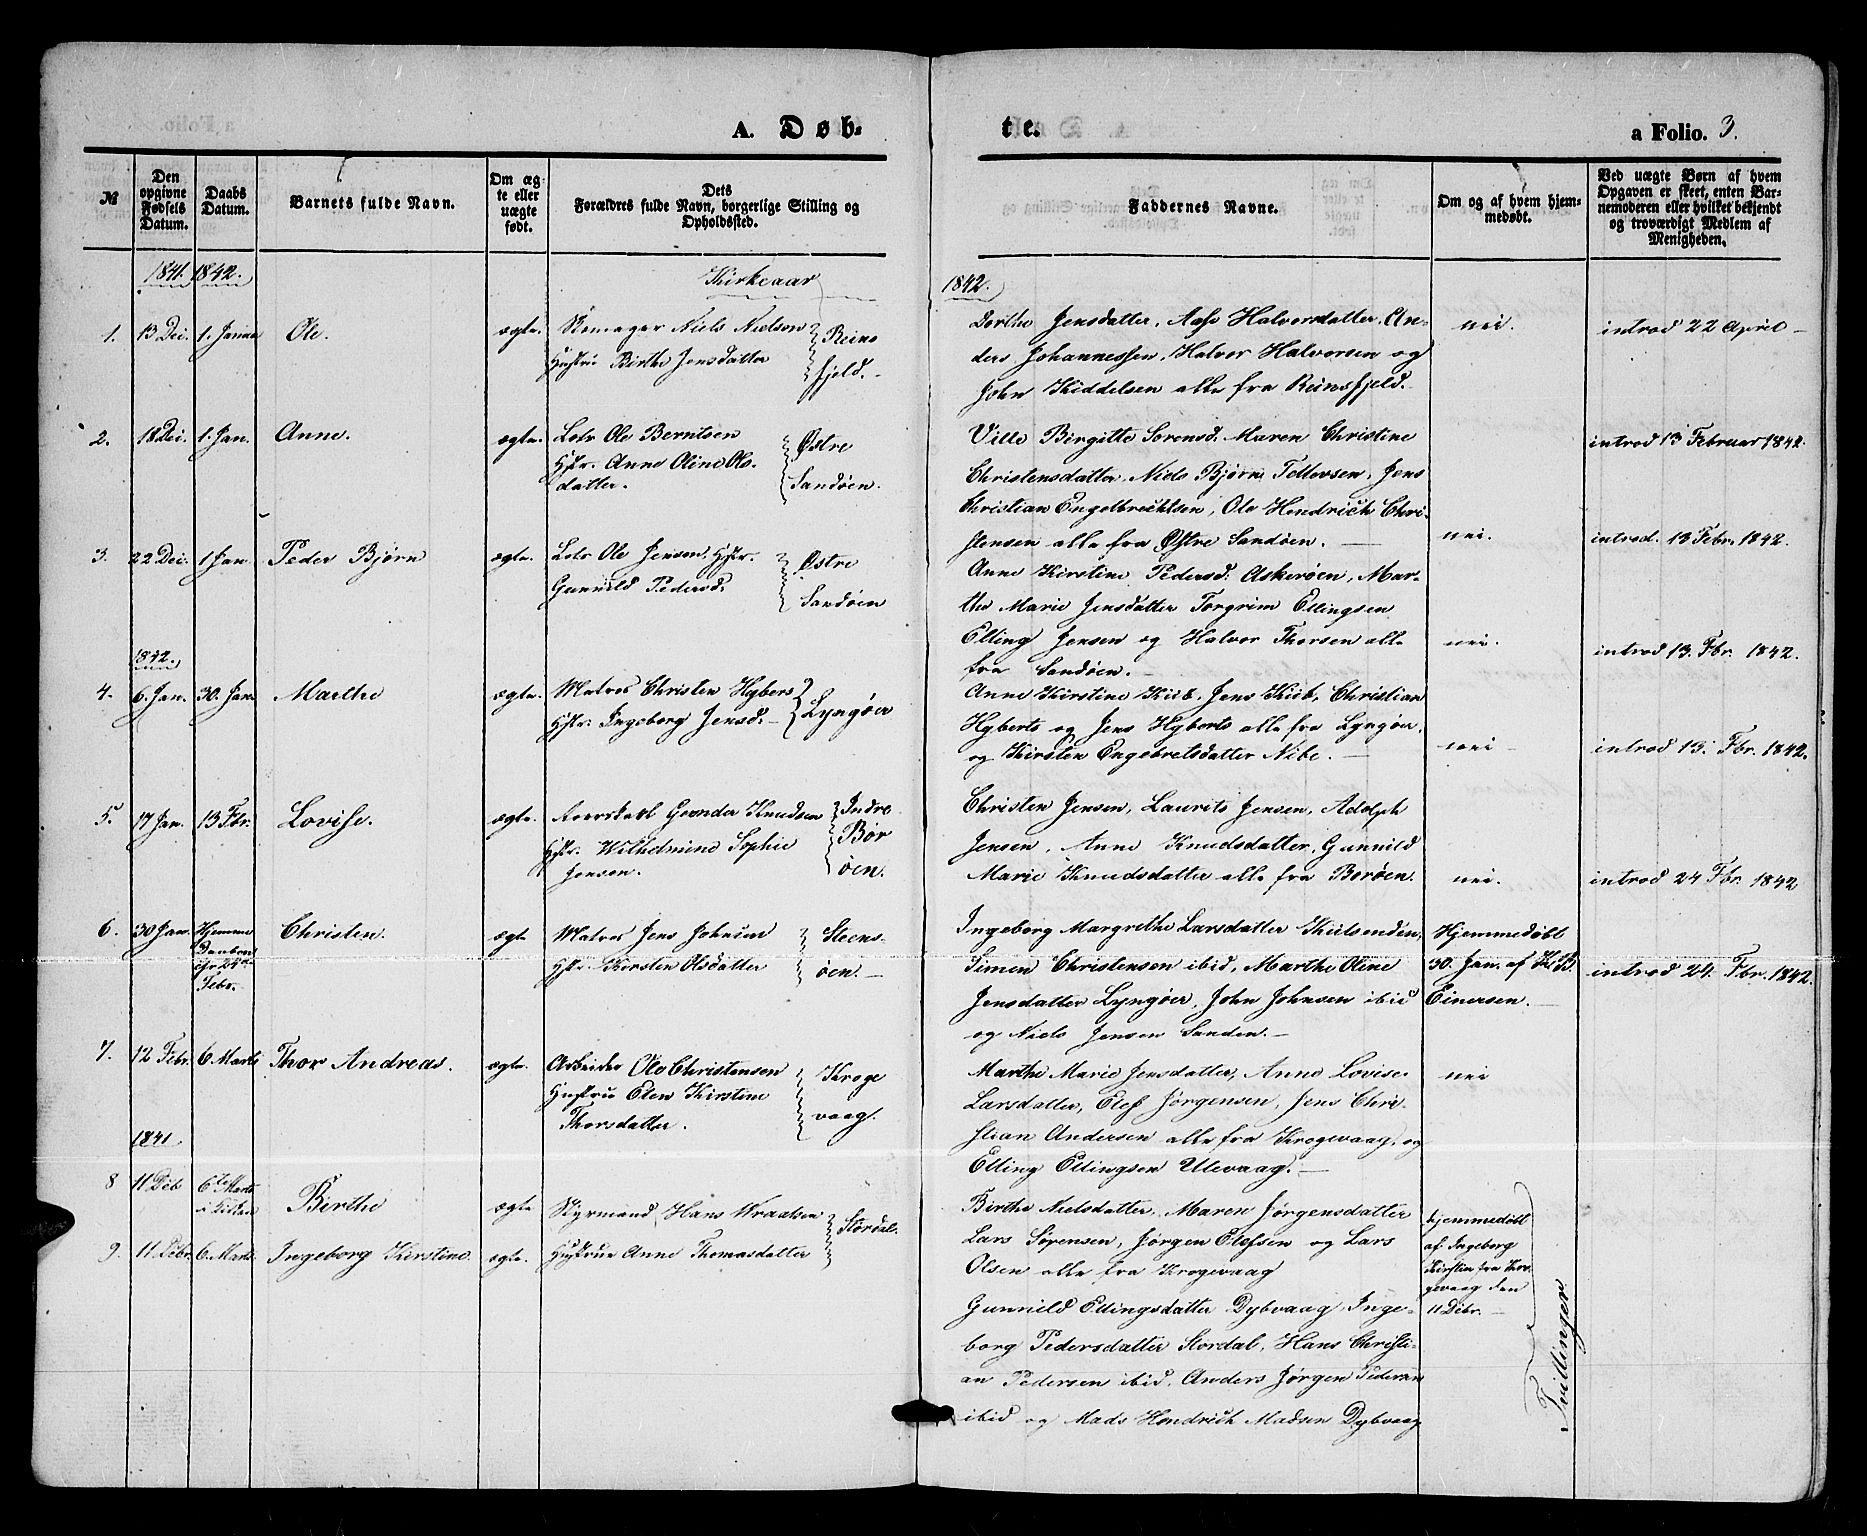 A. Døb-
te.
a Folio. 3.
№
Den opgivne Fødsels Datum.
Daabs Datum.
Barnets fulde Navn.
Om ægte eller uægte født.
Dets Forældres fulde Navn, borgerlige Stilling og Opholdssted.
Faddernes Navne.
Om og af hvem hjemmedøbt.
Ved uægte Børn af hvem Opgaven er skeet, enten Barnemoderen eller hvilket bekjendt og troværdigt Medlem af Menigheden.
1841. 1842. Kirkeaar 1842.
1. 13 Dec. 1. Janua Ole. ægte. Skomager Niels Nielsen
Hustru Birthe Jensdatter
Reins
fjeld.
Dorthe Jensdatter, Aase Halvorsdatter, An-
ders Johannessen, Halvor Halvorsen og
John Kiddelsen alle fra Reinsfjeld.
nei.
introd 22 April
2. 18 Dec. 1. Jan. Anne. ægte. Lots Ole Berntsen
Hstr. Anne Oline Ols-
datter.
Østre
Sandøen.
Ville Birgitte Sørensd. Maren Christine
Christensdatter, Niels Bjørn Tellevsen, Jens
Christian Engelbrechtsen, Ole Hendrich Chri-
stensen alle fra Østre Sandøen.
nei.
introd 13 Februar 1842.
3. 22 Dec. 1 Jan. Peder Bjørn ægte. Lots Ole Jensen, Hstr.
Gunnild Pedersd.
Østre
Sandøen
Anne Kirstine Pedersd: Askerøen, Mar-
the Marie Jensdatter Torgrim Ellingsen
Elling Jensen og Halvor Thorsen alle
fra Sandøen.
nei.
introd. 13 Febr. 1842.
1842.
4. 6. Jan. 30. Jan. Marthe ægte. Matros Christen Hyberts
Hstr. Ingeborg Jensd.
Lyngøer
Anne Kirstine Kiil, Jens Kiil, Christian
Hyberts og Jens Hyberts alle fra Lyngøer,
og Kirsten Engebretsdatter Nibe.
nei
introd 13. Fbr. 1842.
introd 13. Fbr. 1842.
5. 17 Jan. 13 Fbr. Lovise. ægte. Gunder Knudsen
Hstr. Wilhelmine Sophie
Jensen.
Indre
Bor
øen.
Christen Jensen, Laurits Jensen, Adolph
Jensen, Anne Knudsdatter, Gunnild
Marie Knudsdatter alle fra Borøen.
nei.
introd 24 Fbr. 1842
6. 30 Jan. Hjemme
24de
Febr.
Christen. ægte Matros Jens Johnsen
Hstr. Kirsten Olsdatter
Steens-
øen.
Ingeborg Margrethe Larsdatter
Simen Christensen ibid, Marthe Oline
Jensdatter Lyngøer, John Johnsen ibid
og Niels Jensen Sanden.
Hjemmedøbt
30. Jan. af
Einersen.
introd 24. Fbr. 1842.
7. 12 Febr. 6 Marts Thor Andreas. ægte. Arbeider Ole Christensen
Hustru Elen Kirstine
Thorsdatter.
Kroge
vaag.
Marthe Marie Jensdatter, Anne Lovise
Larsdatter, Elef Jørgensen, Jens Chri-
stian Andersen alle fra Krogevaag, og
Elling Ellingsen Ulevaag.
nei
1841
8 11 Deb 6te Marts
i Kirken
Birthe ægte Styrmand Hans Wraalsen
Hustrue Anne Thomasdatter
Stordal.
Birthe Nielsdatter, Maren Jørgensdatter
Lars Sørensen, Jørgen Elefsen og Lars
Olsen alle fra Krogevaag
hjemmedøbt
af Ingeborg
Kirstine fra Kro-
gevaag den
11 Debr.
9. 11 Debr. 6. Marts Ingeborg Kirstine. ægte.
Gunnild Ellingsdatter Dybvaag Inge-
borg Pedersdatter Stordal, Hans Christi-
an Pedersen ibid, Anders Jørgen Pedersen
ibid og Mads Hendrich Madsen Dybvaag
Tvillinger